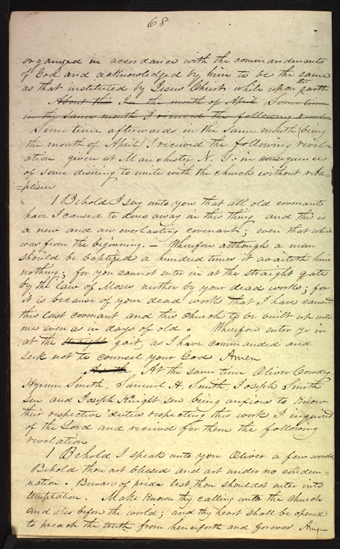 68
organized in accordance with the commandments
of God and acknowledged by him to be the same
as that instituted by Jesus Christ while upon the earth
About this In the month of April Some time
in the same month I received the following
Some time afterwards in the same month, being
the month of April I received the following revel-
ation given at Manchester N. Y; in consequence
of some desiring to unite with the church without rebap-
tism
1 Behold I say unto you that all old covenants
have I caused to done away in this thing, and this is
a new and an everlasting covenant; even that which
was from the beginning.— Wherefore although a man
should be baptized a hundred times it availeth him
nothing; for you cannot enter in at the straight gate
by the law of Moses neither by your dead works; for
it is because of your dead works that I have caused
this last covenant and this church to be built up unto
me even as in days of old. Wherefore enter ye in
at the straight gait, as I have commanded and
seek not to counsel your God. Amen
At the same time Oliver Cowdry
Hyrum Smith, Samuel H. Smith, Joseph Smith
Sen and Joseph Knight Sen being anxious to know
their respective duties respecting this work I inquired
of the Lord and received for them the following
revelations
1 Behold I speak unto you Oliver a few words
Behold thou art blessed and art under no condem-
nation. Beware of pride lest thou shouldst enter into
temptation. Make known thy calling unto the church
and also before the world; and thy heart shall be opened
to preach the truth from henceforth and forever Amen